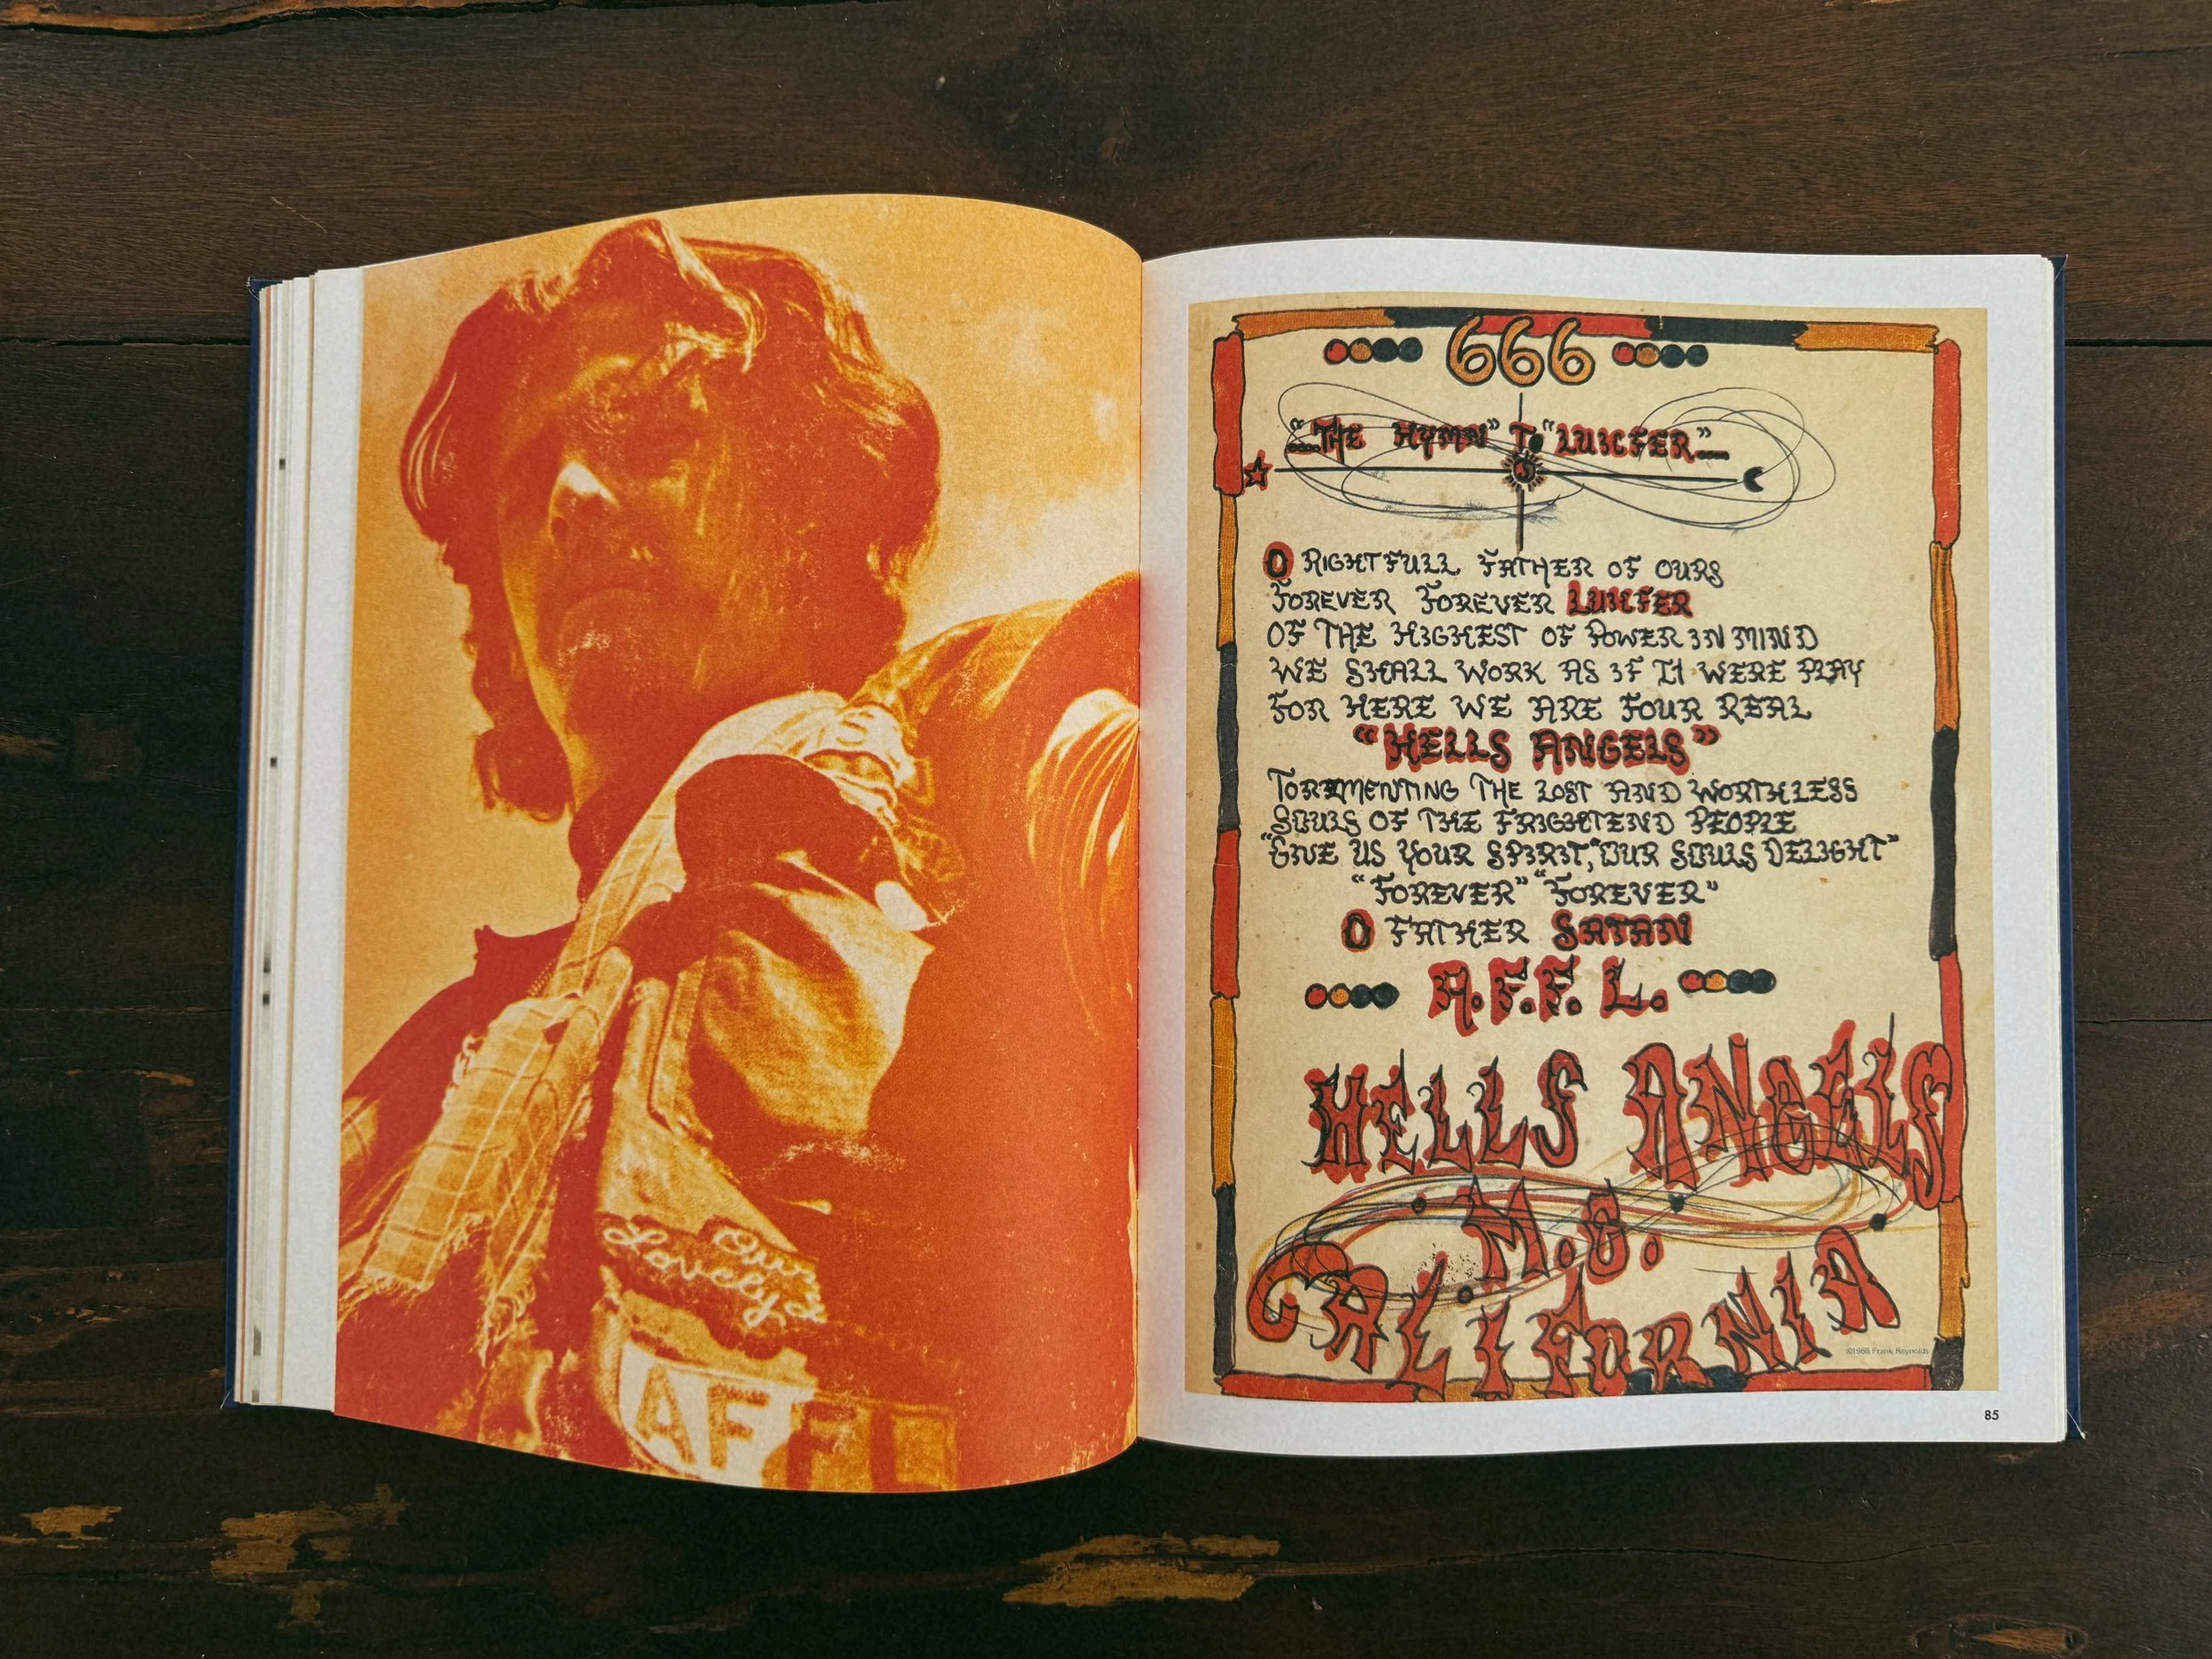 Our
Lovely
AFFL
666
"THE HYMN" TO "LUICFER"
O RIGHTFULL FATHER OF OURS
FOREVER FOREVER LUICFER
OF THE HIGHEST OF POWER IN MIND
WE SHALL WORK AS IF IT WERE PLAY
FOR HERE WE ARE FOUR REAL
"HELLS ANGELS"
TORMENTING THE LOST AND WORTHLESS
SOULS OF THE FRIGHTEND PEOPLE
"GIVE US YOUR SPIRIT," "OUR SOULS DELIGHT"
"FOREVER" "FOREVER"
O FATHER SATAN
A.F.F.L.
HELLS ANGELS
M.C.
CALIFORNIA
©1968 Frank Reynolds
85